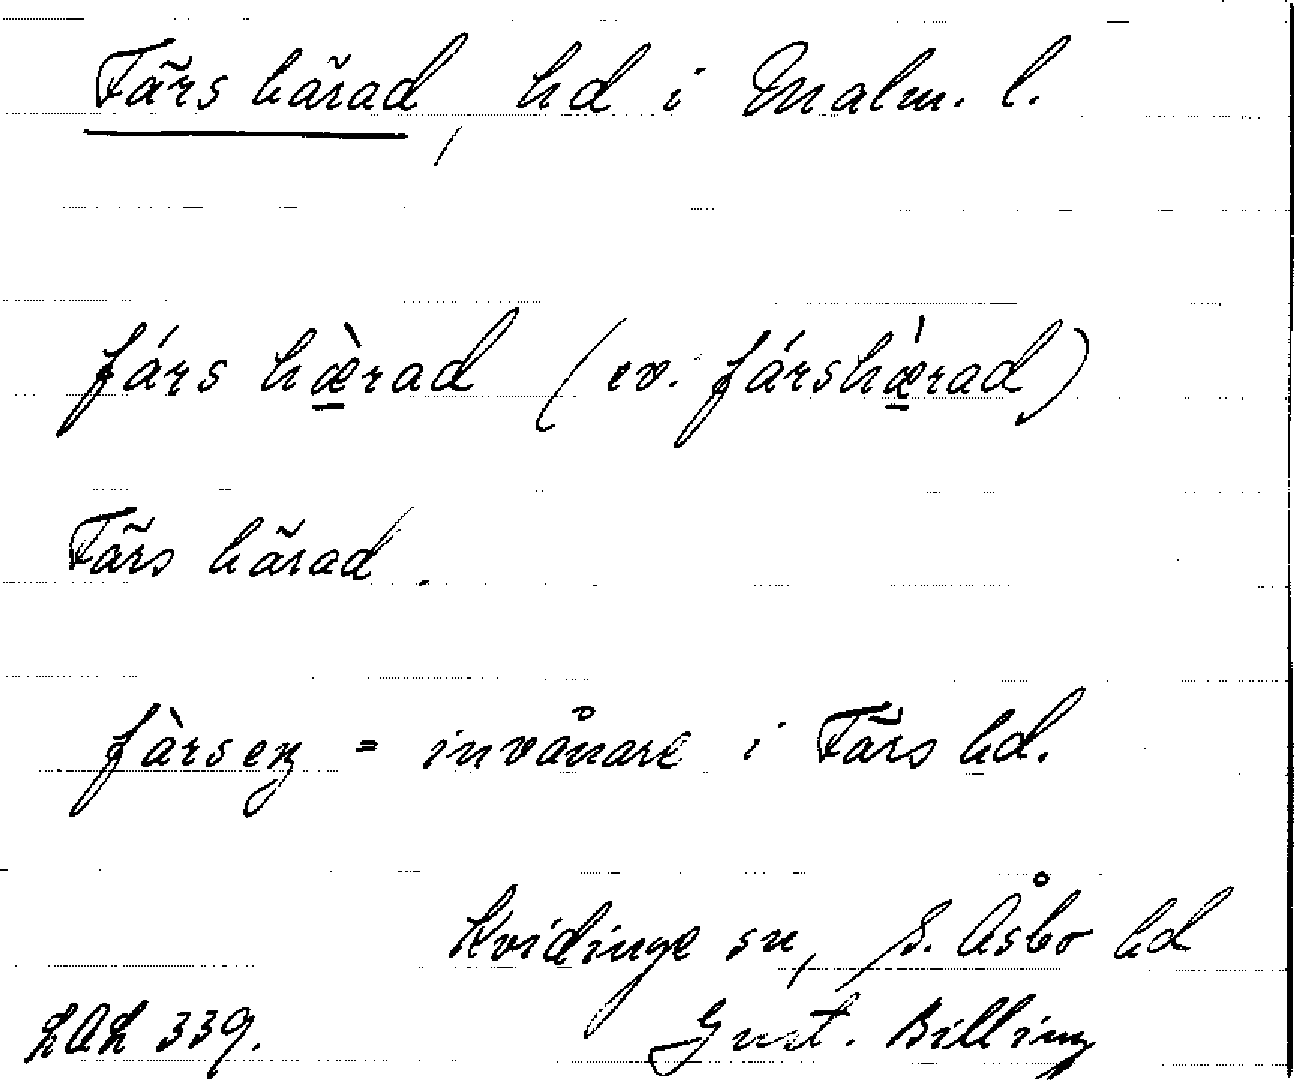 Färs härad, hd i Malm. l.
fárs hæ̀rad (ev. fárshæ̀rad)
Färs härad.
fàrseŋ = invånare i Färs hd.
Kvidinge sn, S. Åsbo hd
LAL 339. Gust. Billing